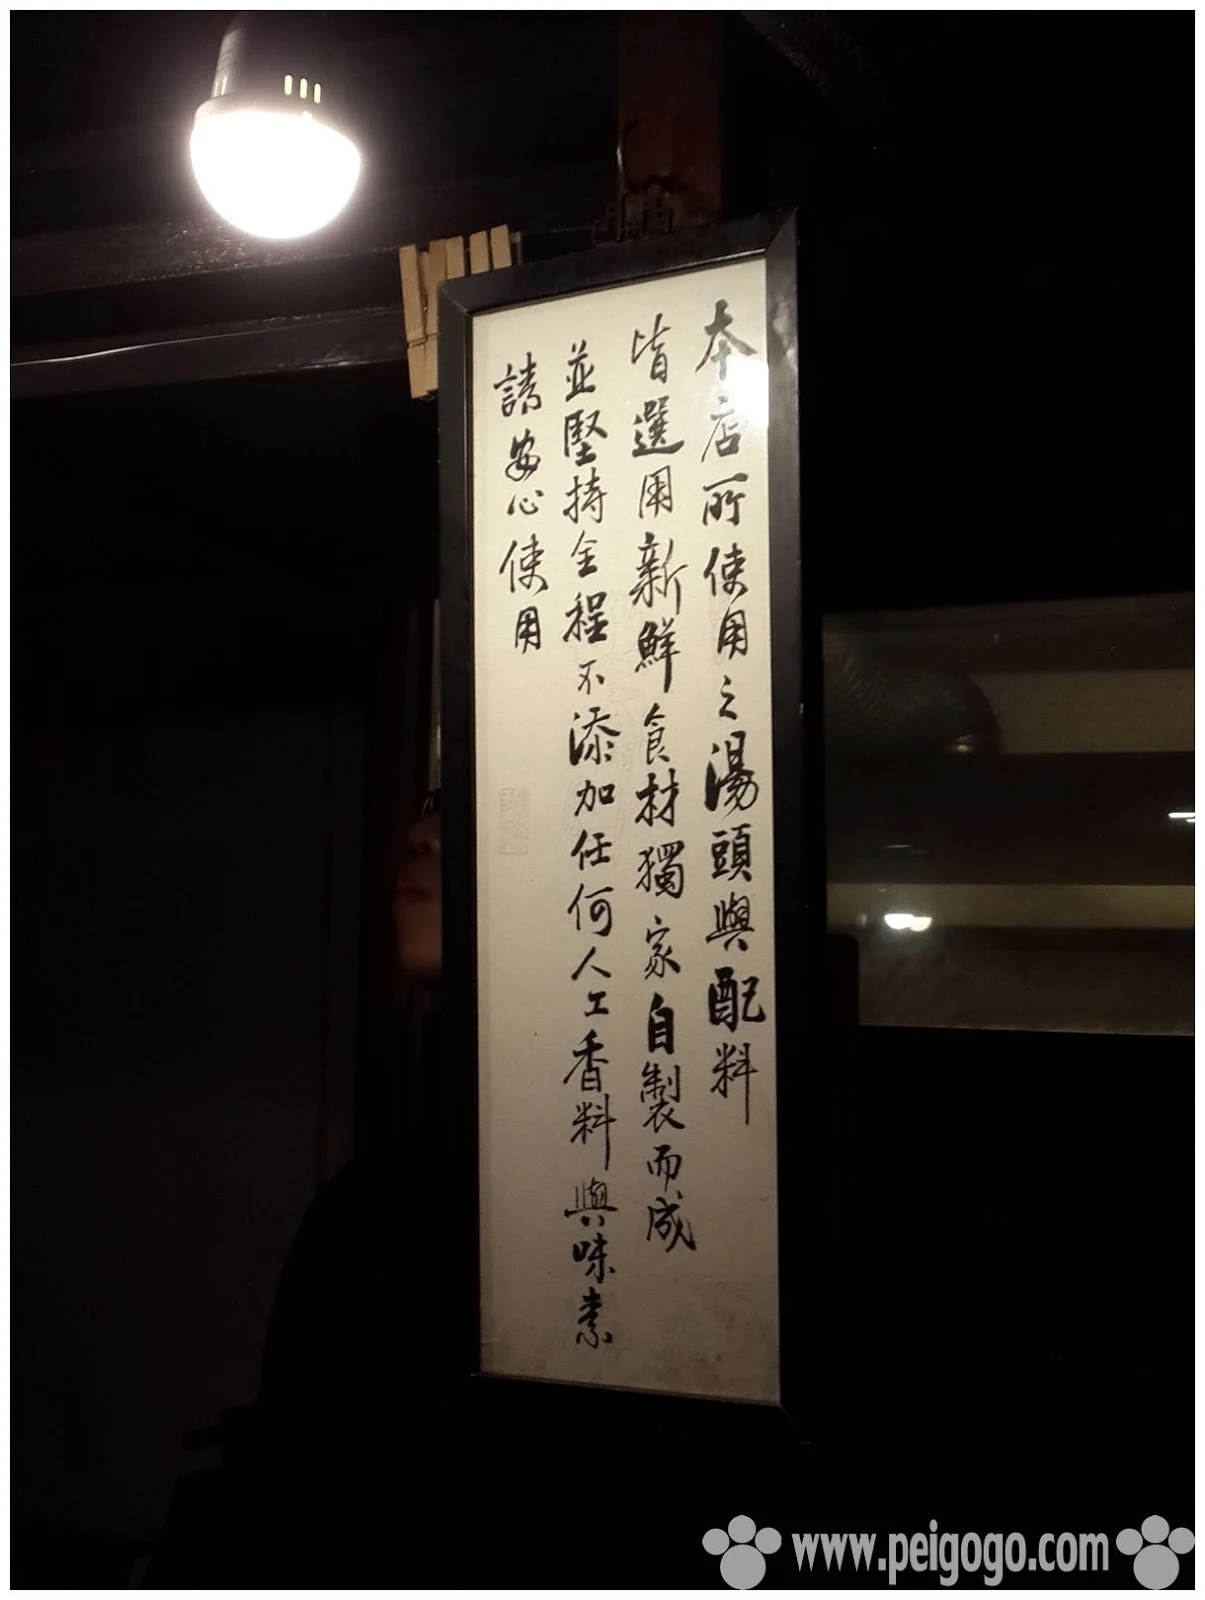 本店所使用之湯頭與配料
皆選用新鮮食材獨家自製而成
並堅持全程不添加任何人工香料與味素
請安心使用
www.peigogo.com